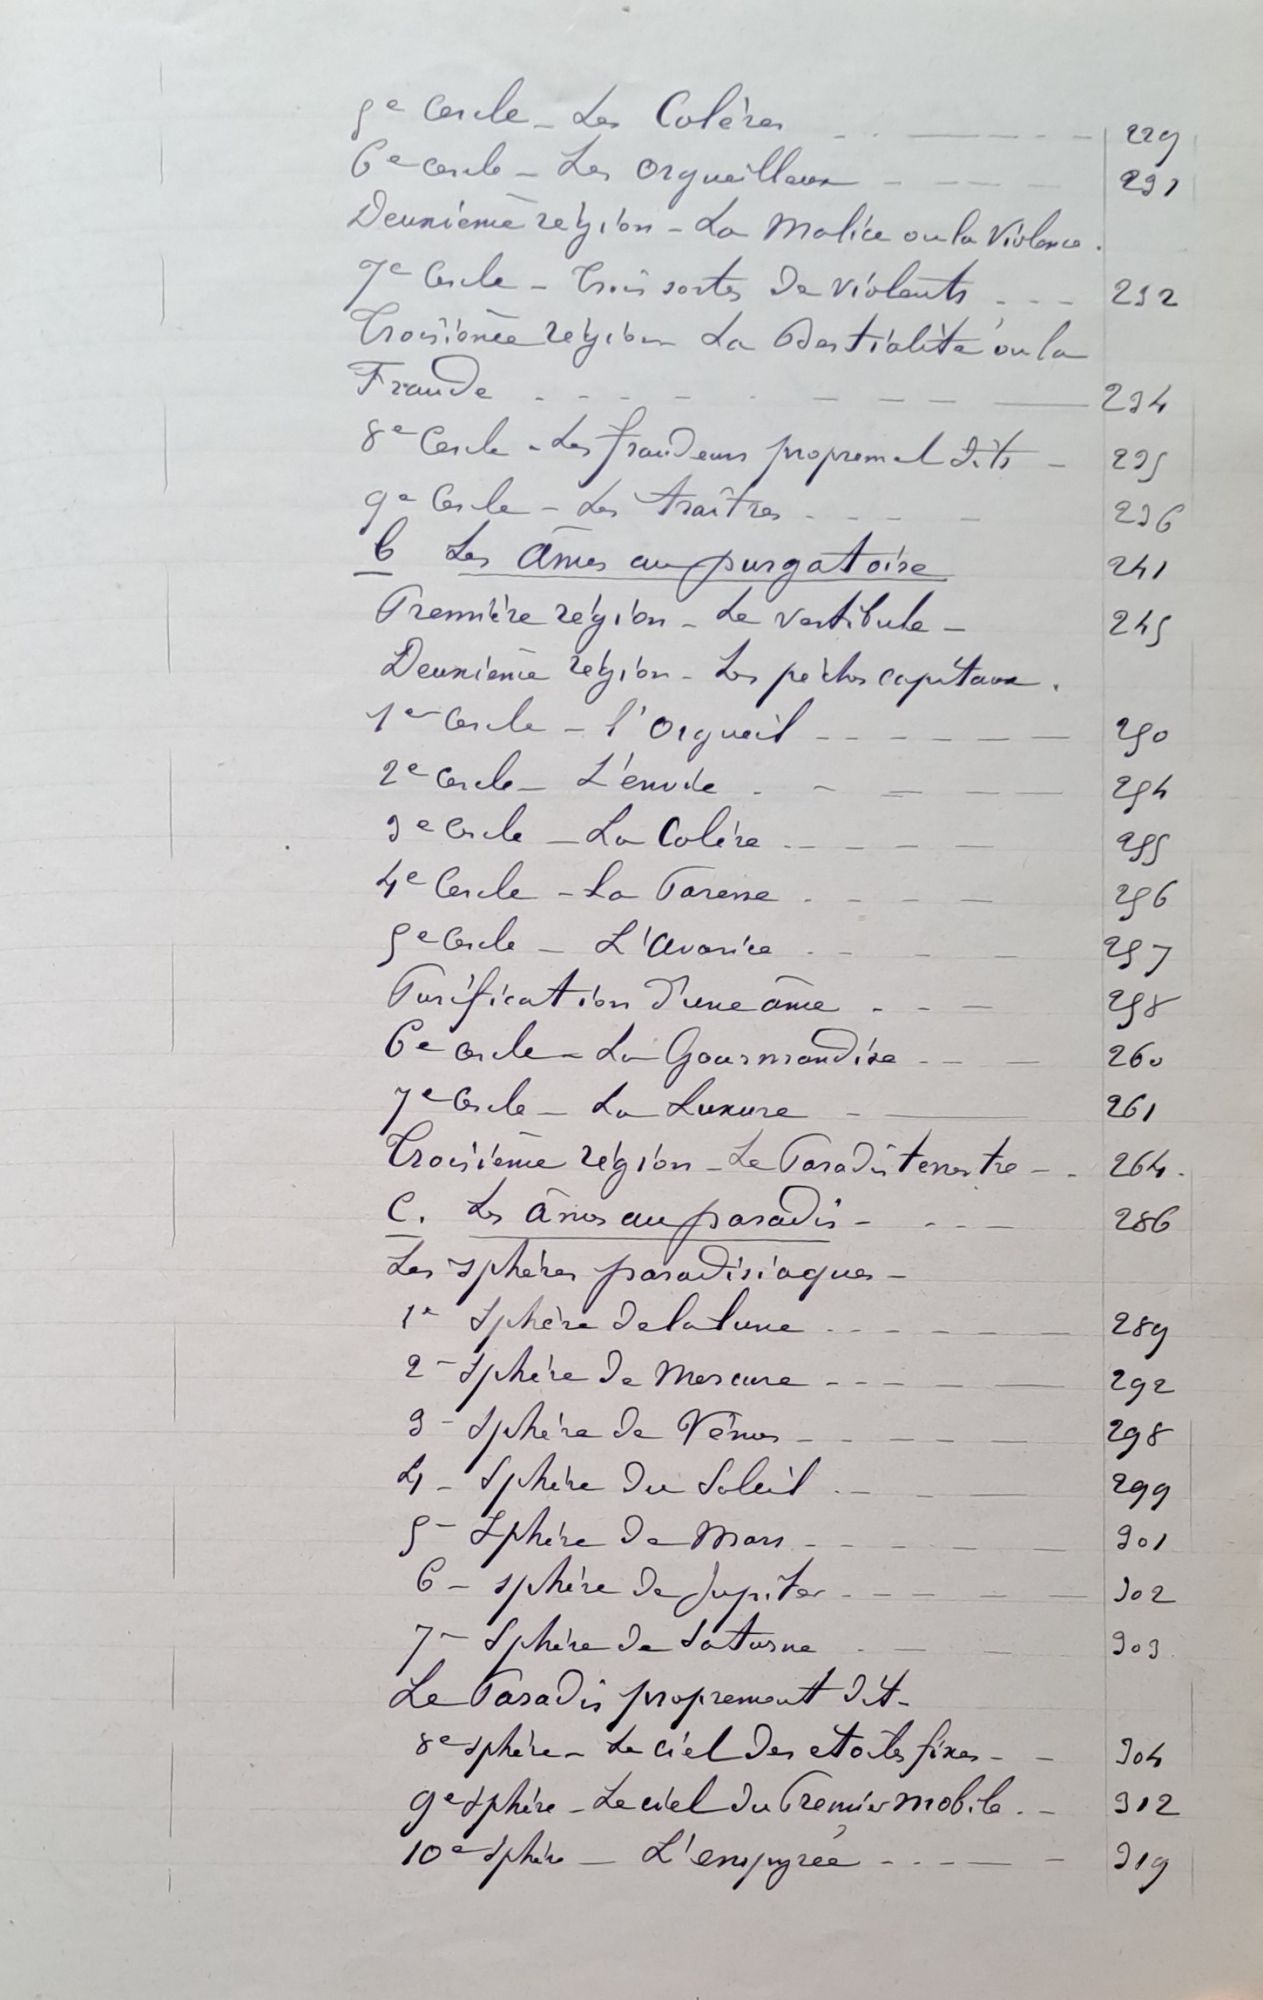 5e Cercle - Les Colères 229
6e Cercle - Les Orgueilleux 231
Deuxième région - La Malice ou la Violence.
7e Cercle - Trois sortes de violents 232
Troisième région La Bestialité ou la
Fraude 234
8e Cercle - Les fraudeurs proprement dits 235
9e Cercle - Les traîtres 236
b Les âmes au purgatoire 241
Première région - Le vestibule - 245
Deuxième région - Les péchés capitaux.
1er Cercle - l'Orgueil 250
2e Cercle - L'envie 254
3e Cercle - La Colère 255
4e Cercle - La Paresse 256
5e Cercle - L'avarice 257
Purification d'une âme 258
6e Cercle - La Gourmandise 260
7e Cercle - La Luxure 261
Troisième région - Le Paradis terrestre 264.
C. Les âmes au paradis 286
Les sphères paradisiaques -
1e Sphère de la lune 289
2 - Sphère de Mercure 292
3 - Sphère de Vénus 298
4 - Sphère du Soleil 299
5 - Sphère de Mars 301
6 - sphère de Jupiter 302
7 - Sphère de Saturne 303
Le Paradis proprement dit -
8e sphère - Le ciel des étoiles fixes 304
9e Sphère - Le ciel du Premier mobile 312
10e Sphère - L'empyrée 319